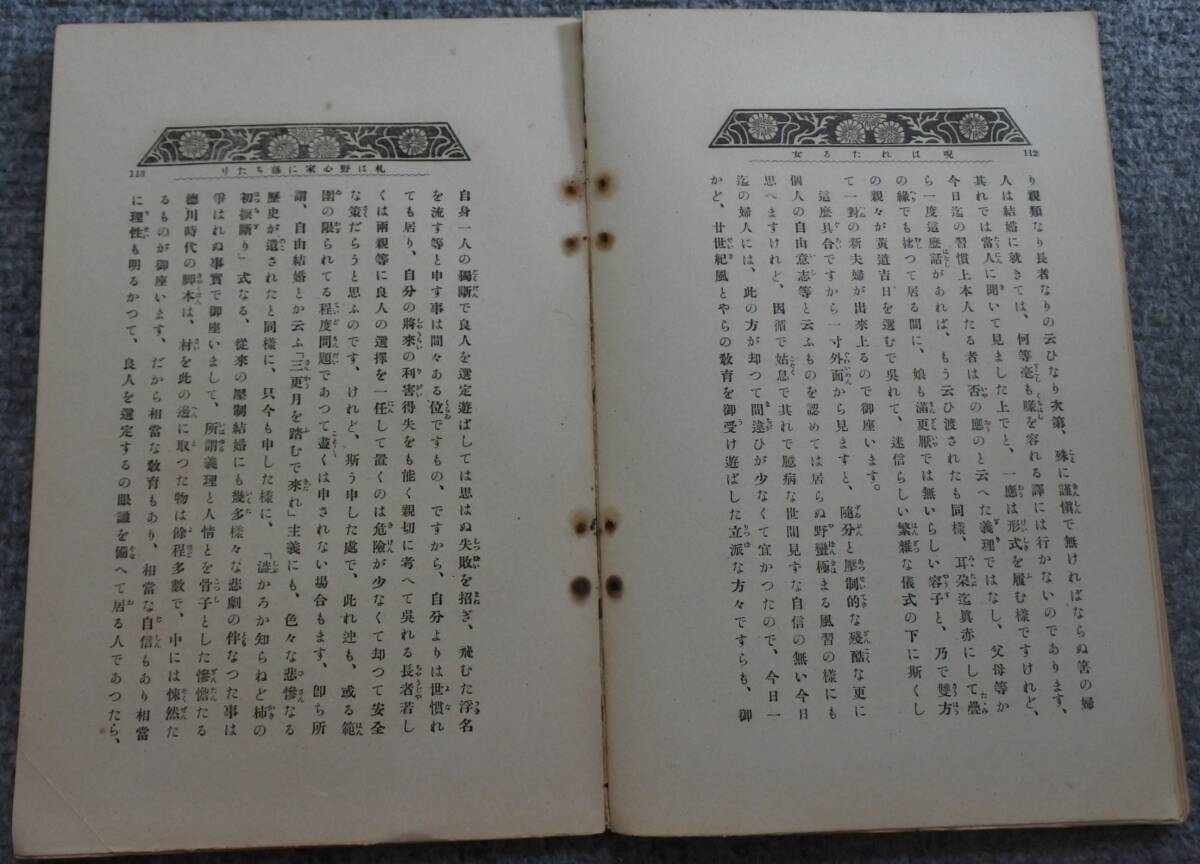 112
呪はれたる女
り親類なり長者なりの云ひなり次第、殊に謹愼で無ければならぬ筈の婦
人は結婚に就きては、何等毫も喙を容れる譯には行かないのであります、
其れでは當人に聞いて見ました上でと、一應は形式を履む樣ですけれど、
今日迄の習慣上本人たる者は否の應のと云へた義理ではなし、父母等か
ら一度這麼話があれば、もう云ひ渡されたも同樣、耳朶迄眞赤にして疊
の緣でも拢つて居る間に、娘も滿更厭では無いらしい容子と、乃で雙方
の親々が黃道吉日を選むで吳れて、迷信らしい繁雜な儀式の下に斯くし
て一對の新夫婦が出來上るので御座います。
這麼具合ですから一寸外面から見ますと、隨分と壓制的な殘酷な更に
個人の自由意志等と云ふものを認めては居らぬ野蠻極まる風習の樣にも
思へますけれど、因循で姑息で其れで臆病な世間見ずな自信の無い今日
迄の婦人には、此の方が却つて間違ひが少なくて宜かつたので、今日一
かど、廿世紀風とやらの敎育を御受け遊ばした立派な方々ですらも、御
札は野心家に落ちたり
113
自身一人の獨斷で良人を選定遊ばしては思はぬ失敗を招ぎ、飛むた浮名
を流す等と申す事は間々ある位ですもの、ですから、自分よりは世慣れ
ても居り、自分の將來の利害得失をも能く親切に考へて吳れる長者若し
くは兩親等に良人の選擇を一任して置くのは危險が少なくて却つて安全
な策だらうと思ふのです、けれど、斯う申した處で、此れ迚も、或る範
圍の限られてる程度問題であつて盡くは申されない場合もます、卽ち所
謂、自由結婚とか云ふ「三更月を踏むで來れ」主義にも、色々な悲慘なる
歷史が遺されたと同樣に、只今も申した樣に、「澁かろか知らねど柿の
初振斷り」式なる、從來の壓制結婚にも幾多樣々な悲劇の伴なつた事は
爭はれぬ事實で御座いまして、所謂義理と人情とを骨子とした慘憺たる
德川時代の脚本は、材を此の邊に取つた物は餘程多數で、中には悚然た
るものが御座います、だから相當な敎育もあり、相當な自信もあり相當
に理性も明るかつて、良人を選定するの眼識を備へて居る人であつたら、